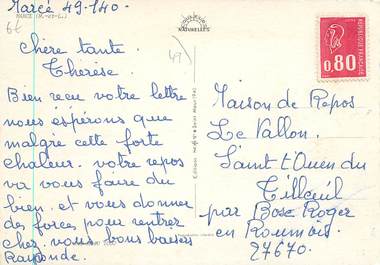 Marcé 49-140-
MARCÉ (M.-et-L.)
6€
49)
NATURELLES
REPUBLIQUE FRANÇAISE
0,80
Chère tante.
Thérèse.
Bien reçu votre lettre
nous espérons que
malgré cette forte
chaleur. votre repos
va vous faire du
bien. et vous donner
des forces pour rentrez
chez. vous. bons baisers
Raymonde.
Maison de Repos
Le Vallon.
Saint-t'Ouen du
Tilleul
par Bosc Roger
en Roumois.
27670.